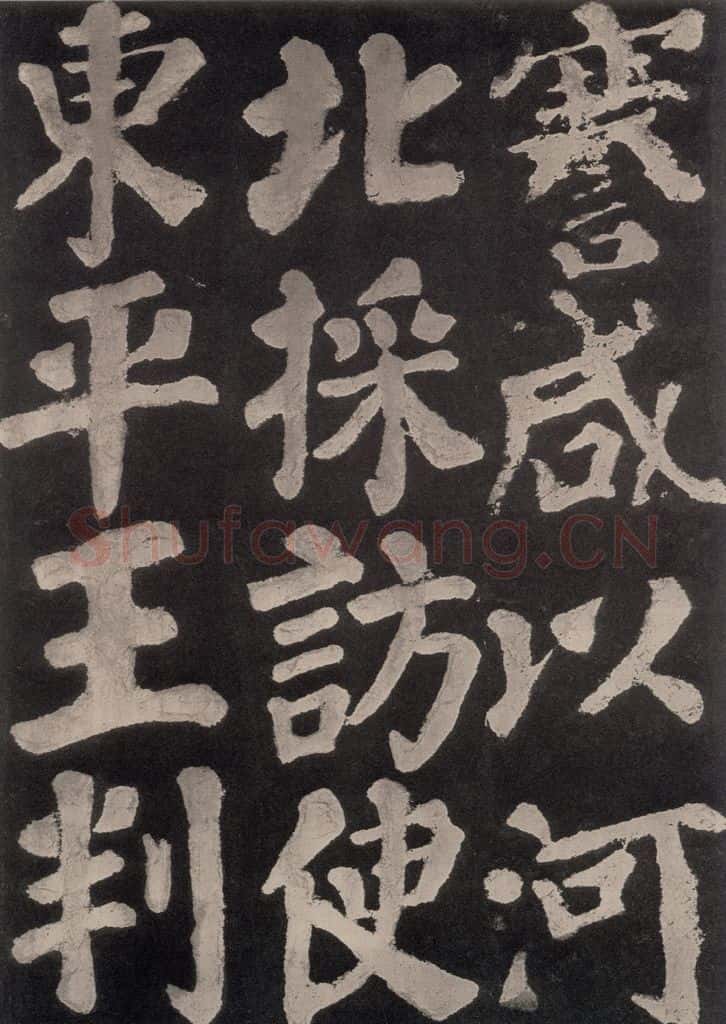 謇咸以河
北採訪使
東平王判
Shufawang.CN